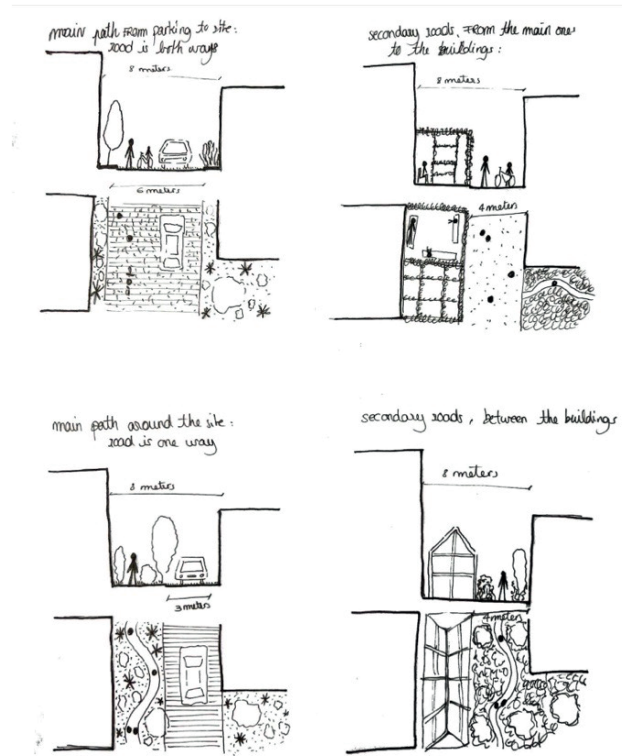 main path from parking to site:
road is both ways
8 meters
6 meters
secondary roads, from the main one
to the buildings:
8 meters
4 meters
main path around the site:
road is one way
8 meters
3 meters
secondary roads, between the buildings
8 meters
4 meters